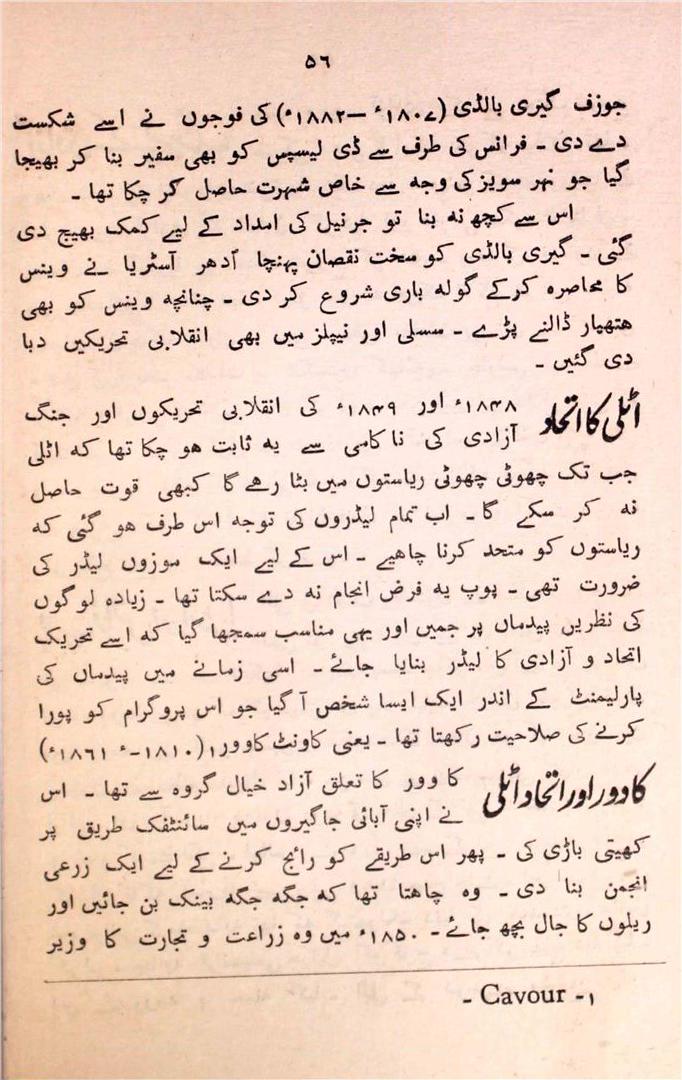 ۵۶
جوزف گیری بالڈی (۱۸۰۷ء – ۱۸۸۲ء) کی فوجوں نے اسے شکست
دے دی ۔ فرانس کی طرف سے ڈی لیسپس کو بھی سفیر بنا کر بھیجا
گیا جو نہر سویز کی وجہ سے خاص شہرت حاصل کر چکا تھا ۔
اس سے کچھ نہ بنا تو جرنیل کی امداد کے لیے کمک بھیج دی
گئی ۔ گیری بالڈی کو سخت نقصان پہنچا اُدھر آسٹریا نے وینس
کا محاصرہ کرکے گولہ باری شروع کر دی ۔ چنانچہ وینس کو بھی
ہتھیار ڈالنے پڑے ۔ سسلی اور نیپلز میں بھی انقلابی تحریکیں دبا
دی گئیں ۔
اٹلی کا اتحاد ۱۸۴۸ء اور ۱۸۴۹ء کی انقلابی تحریکوں اور جنگ
آزادی کی ناکامی سے یہ ثابت ہو چکا تھا کہ اٹلی
جب تک چھوٹی چھوٹی ریاستوں میں بٹا رہے گا کبھی قوت حاصل
نہ کر سکے گا ۔ اب تمام لیڈروں کی توجہ اس طرف ہو گئی کہ
ریاستوں کو متحد کرنا چاہیے ۔ اس کے لیے ایک موزوں لیڈر کی
ضرورت تھی ۔ پوپ یہ فرض انجام نہ دے سکتا تھا ۔ زیادہ لوگوں
کی نظریں پیدماں پر جمیں اور یہی مناسب سمجھا گیا کہ اسے تحریک
اتحاد و آزادی کا لیڈر بنایا جائے ۔ اسی زمانے میں پیدماں کی
پارلیمنٹ کے اندر ایک ایسا شخص آ گیا جو اس پروگرام کو پورا
کرنے کی صلاحیت رکھتا تھا ۔ یعنی کاونٹ کاوور۱ (۱۸۱۰ء – ۱۸۶۱ء)
کاوور اور اتحاد اٹلی کا وور کا تعلق آزاد خیال گروہ سے تھا ۔ اس
نے اپنی آبائی جاگیروں میں سائنٹفک طریق پر
کھیتی باڑی کی ۔ پھر اس طریقے کو رائج کرنے کے لیے ایک زرعی
انجمن بنا دی ۔ وہ چاہتا تھا کہ جگہ جگہ بینک بن جائیں اور
ریلوں کا جال بچھ جائے ۔ ۱۸۵۰ء میں وہ زراعت و تجارت کا وزیر
۱- Cavour -